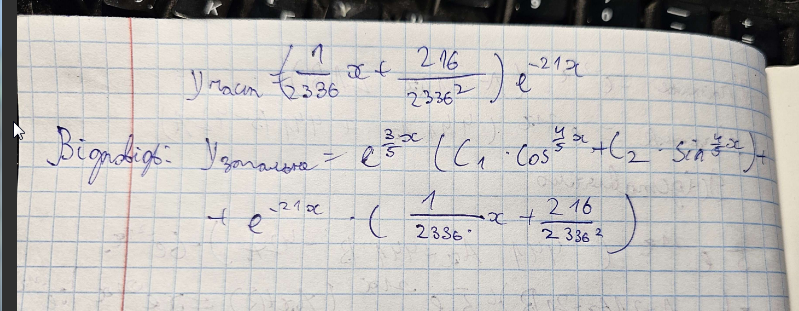 y част = (1/2336 x + 216/2336²) e^-21x
Відповідь: y загальне = e^3/5x (C1 · cos 4/5 x + C2 · sin 4/5 x) +
+ e^-21x · (1/2336 · x + 216/2336²)